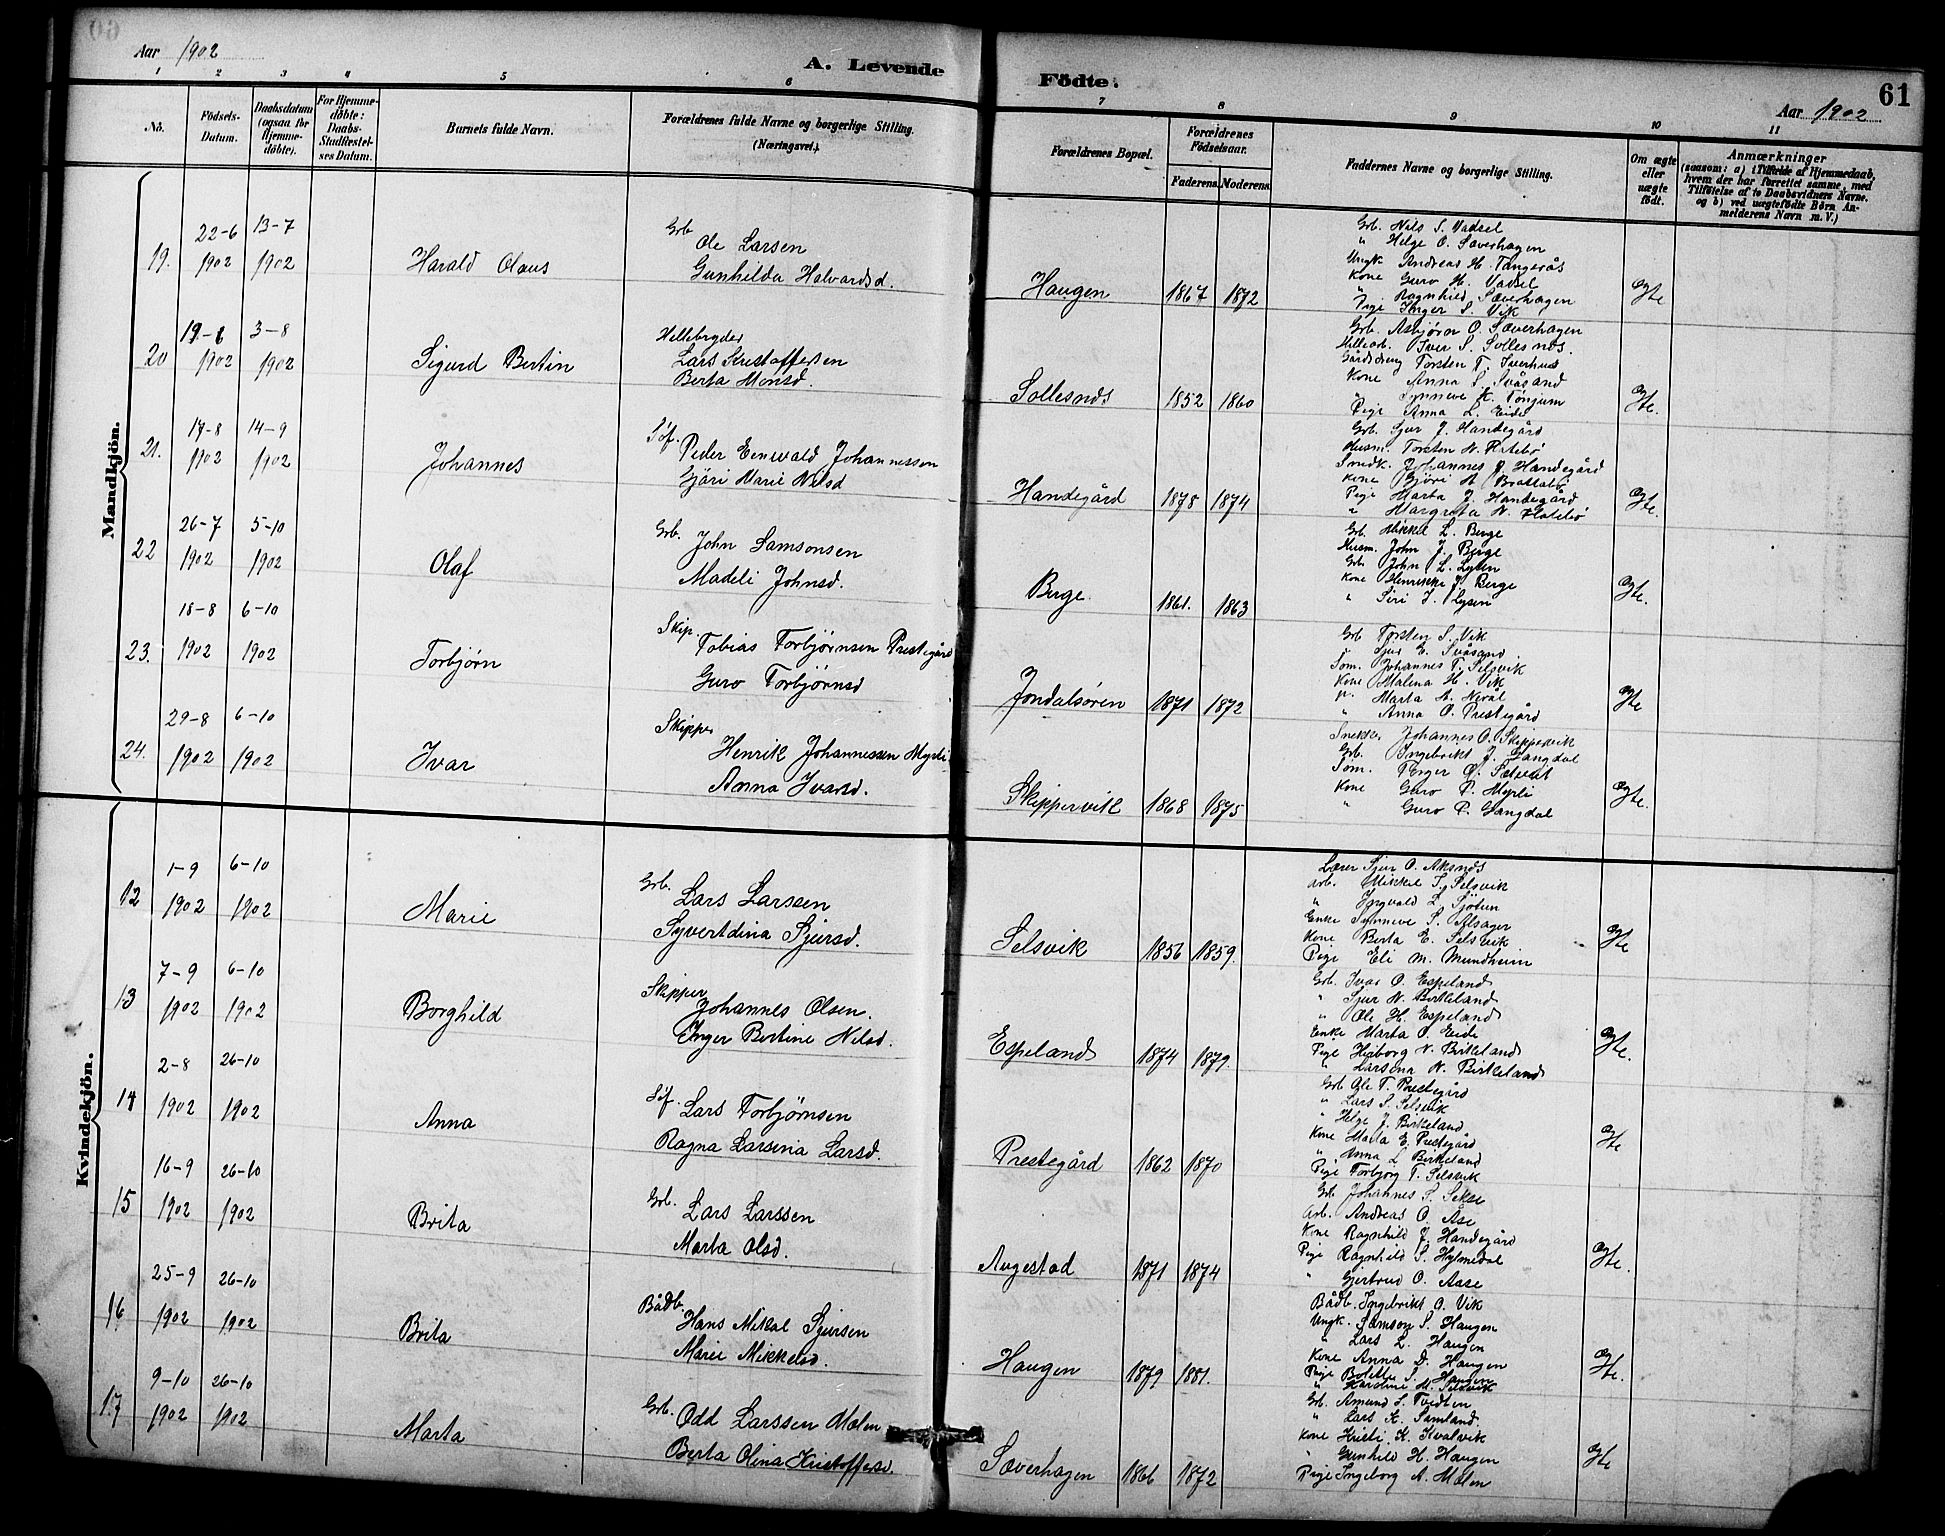 Aar 1902
A. Levende
Födte.
61
Aar 1902
1 2 3 4 5 6 7 8 9 10 11
No.
Födsels-Datum.
Daabsdatum (ogsaa for Hjemme-döbte).
For Hjemme-döbte: Daabs-Stadfæstel-ses Datum.
Barnets fulde Navn.
Forældrenes fulde Navne og borgerlige Stilling. (Næringsvei.)
Forældrenes Bopæl.
Forældrenes Födselsaar.
Faderens. Moderens.
Faddernes Navne og borgerlige Stilling.
Om ægte eller uægte födt.
Anmærkninger
(saasom: a) i Tilfælde af Hjemmedaab, hvem der har forrettet samme, med Tilföielse af to Daabsvidners Navne, og b) ved uægtefödte Börn An-melderens Navn m. V.)
Mandkjön.
19.
22-6 1902
13-7 1902
Harald Olaus
Grb Ole Larsen
Gunhilda Halvardsd.
Haugen
1867 1872
Grb. Nils S. Vadsel
" Helge O. Sæverhagen
Ungk. Andreas H. Tangerås
Kone Guro H. Vadsel
" Ragnhild Sæverhagen
Pige Inger S. Vik
Ægte
20
19-6 1902
3-8 1902
Sigurd Bertin
Hellebryder
Lars Kristoffersen
Berta Monsd.
Sollesnes
1852 1860
Grb. Asbjørn O. Sæverhagen
Hellearb. Iver S. Sollesnes.
Gårddreng Torsten T. Sverhus
Kone Anna S. Svåsand
" Synneve K. Tonjum
Pige Anna L. Eide
Ægte.
21.
17-8 1902
14-9 1902
Johannes
Söf. Peder Enevald Johannessen
Gjöri Marie Nilsd
Handegård
1878 1874
Grb. Sjur J. Handegård
Husm. Torsten N. Hatebø
Smdk. Johannes J. Handegård
Kone Gjöri A. Brattabø
Pige Marta J. Handegård
" Margreta N. Hatebø
Ægte.
22
26-7 1902
5-10 1902
Olaf
Grb. John Samsonsen
Madeli Johnsd.
Berge.
1861. 1863
Grb. Mikkel L. Berge
Husm. John J. Berge
Grb. John L. Lysen
Kone Henrikke J. Berge
" Siri J. Lysen
Ægte.
23.
18-8 1902
6-10 1902
Torbjørn
Skip. Tobias Torbjørnsen Prestegård
Guro Torbjørnsd
Jondalsøren
1871 1872
Grb Torsten S. Vik
" Sjur E. Svåsand
Tøm. Johannes T. Selsvik
Kone Malena H. Vik
" Marta A. Nerål
" Anna O. Prestegård
Ægte
24.
29-8 1902
6-10 1902
Ivar
Skipper
Henrik Johannessen Myrli
Anna Ivarsd.
Skippervik
1868 1875
Snekker Johannes O. Skippervik
Grb. Ingebrikt J. Langdal
Tøm.
Kone Guro P. Myrli
" Guro P. Gangdal
Ægte.
Kvindekjön.
12
1-9 1902
6-10 1902
Marie
Grb. Lars Larssen
Syvertdina Sjursd.
Selsvik
1856 1859.
Lærer Sjur O. Aksnes
Arb. Mikkel T. Selsvik
" Ingvald L. Sjøtun
Enke Synneve S. Alsager
Kone Berta E. Selsvik
Pige Eli M. Mundheim
Ægte
13
7-9 1902
6-10 1902
Borghild
Skipper
Johannes Olsen.
Inger Bertine Nilsd.
Espeland
1874 1879.
Grb. Ivar O. Espeland
" Sjur N. Birkeland
" Ole H. Espeland
Enke Marta O. Eide
Pige Herborg N. Birkeland
" Larsena N. Birkeland
Ægte.
14
2-8 1902
26-10 1902
Anna
Söf. Lars Torbjørnsen
Ragna Larsina Larsd.
Prestegård
1862 1870
Grb Ole T. Prestegård
" Lars S. Selsvik
" Helge J. Birkeland
Kone Marta E. Prestegård
" Anna L. Birkeland
Pige Torbjørg T. Selsvik
Ægte
15
16-9 1902
26-10 1902
Brita
Grb. Lars Larssen
Marta Olsd.
Augestad
1871 1874
Grb Johannes S. Sekse
Arb. Andreas O. Åse
Kone Ragnhild J. Handegård
Pige Ragnhild S. Hylmedal
" Gjertrud O. Aase
Ægte.
16
25-9 1902
26-10 1902
Brita
Bådb.
Hans Mikal Sjursen
Marie Mikkelsd.
Haugen
1879 1881.
Bådb. Ingebrikt O. Vik
Ungk. Samson S. Haugen
" Lars L. Haugen
Kone Anna D. Haugen
Pige Bolette S. Haugen
" Karoline M. Selsvik
Ægte.
17
9-10 1902
26-10 1902
Marta
Grb. Odd Larssen Mælen
Berta Olina Kristoffersd.
Sæverhagen
1866 1872
Grb. Amund S. Tveiten
" Lars K. Samland.
Kone Kristi K. Kvalvik
" Gunhild H. Haugen
Pige Ingeborg A. Mælen
Ægte